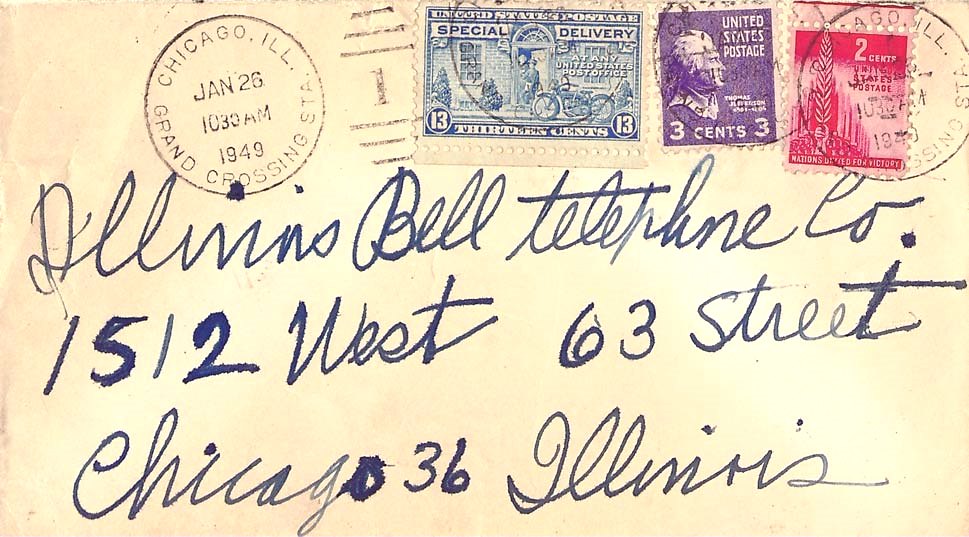 CHICAGO, ILL.
JAN 26
1030 AM
1949
GRAND CROSSING STA.
1
UNITED STATES POSTAGE
SPECIAL DELIVERY
AT ANY
UNITED STATES
POST OFFICE
13 THIRTEEN CENTS 13
UNITED
STATES
POSTAGE
THOMAS
JEFFERSON
3 CENTS 3
2 CENTS
UNITED
STATES
POSTAGE
NATIONS UNITED FOR VICTORY
CHICAGO, ILL.
1030 AM
1949
CROSSING STA.
Illinois Bell telephne Co.
1512 West 63 Street
Chicago 36 Illinois